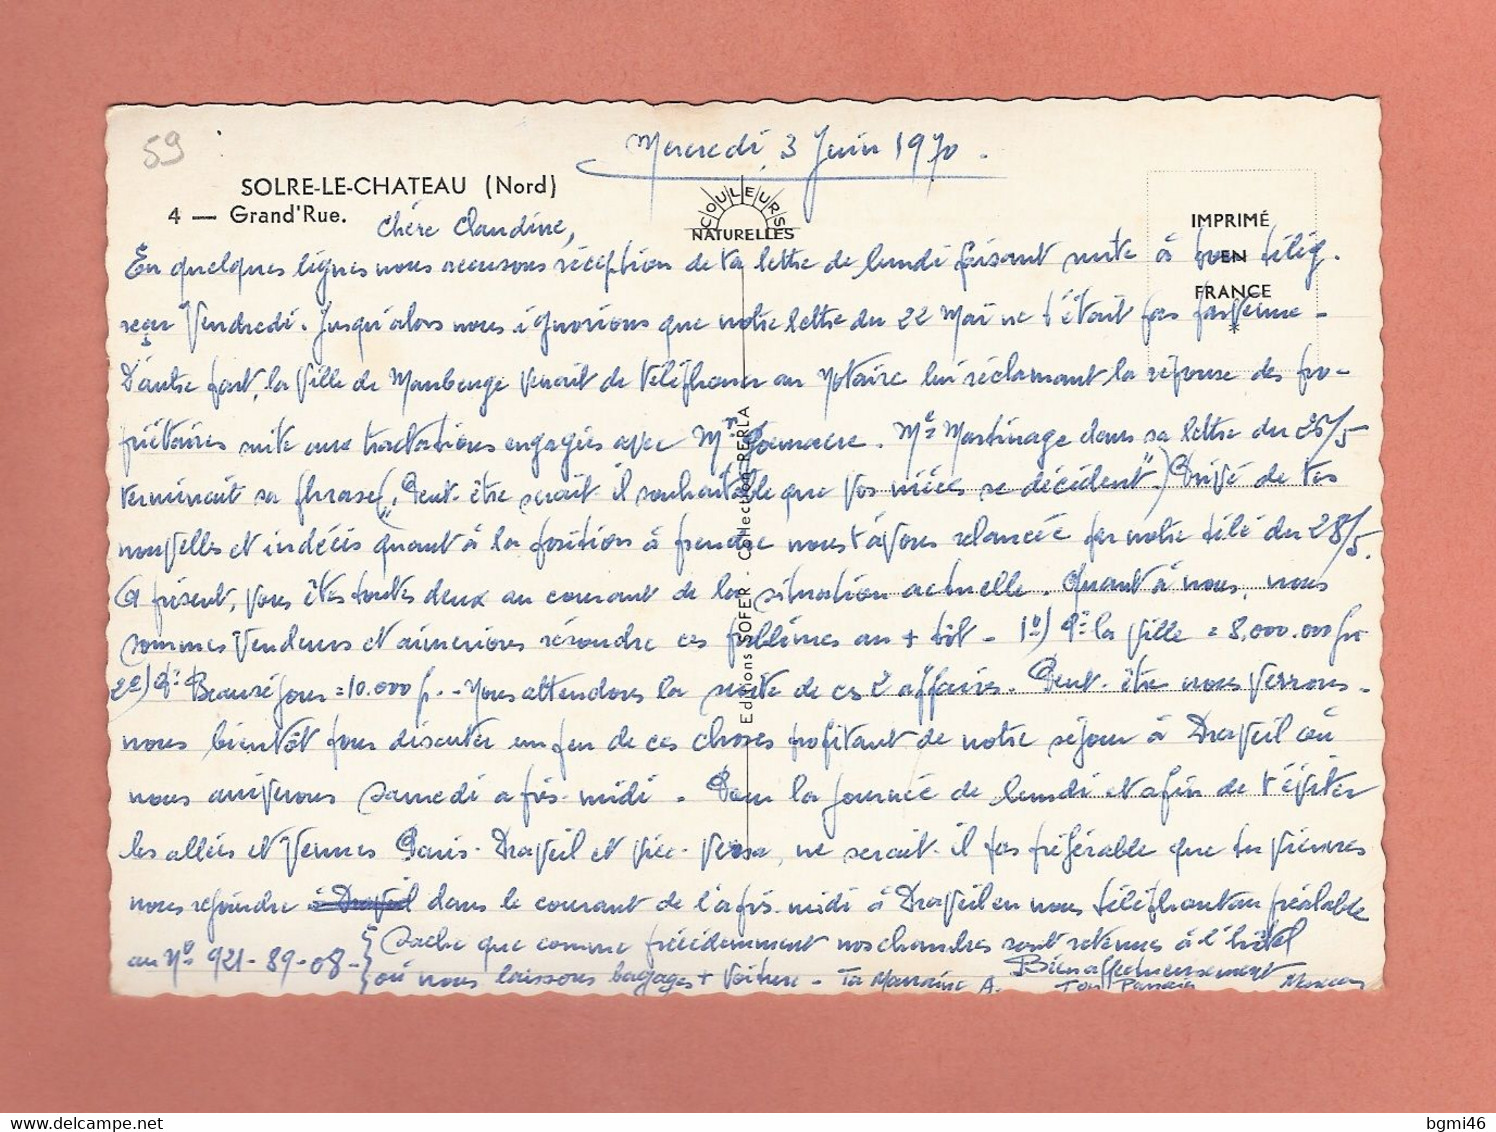 59
Mercredi 3 Juin 1970.
SOLRE-LE-CHATEAU (Nord)
4 — Grand'Rue.
COULEURS
NATURELLES
IMPRIMÉ
EN
FRANCE
*
Chère Claudine,
En quelques lignes nous accusons réception de ta lettre de lundi faisant suite à télég.
reçu Vendredi. Jusqu'alors nous ignorions que notre lettre du 22 Mai ne t'était pas parvenue -
D'autre part, la Ville de Maubeuge venait de téléphoner au Notaire lui réclamant la réponse des pro-
priétaires suite aux tractations engagées avec Mr. Me Martinage dans sa lettre du 26/5
terminait sa phrase ("Peut-être serait-il souhaitable que vos nièces se décident".) Privé de tes
nouvelles et indécis quant à la position à prendre nous t'avons relancée par notre télé du 28/5.
A présent, vous êtes toutes deux au courant de la situation actuelle. Quant à nous, nous
sommes vendeurs et aimerions résoudre ces problèmes au + tôt - 1°) Pé la Ville = 8.000.000 fr
2°) Pé Beauséjour = 10.000 f. - Nous attendons la suite de ces 2 affaires. Peut-être nous verrons-
nous bientôt pour discuter un peu de ces choses profitant de notre séjour à Draveil où
nous arriverons Samedi après-midi. Dans la journée de lundi et afin de t'éviter
les allées et venues Paris-Draveil et vice-versa, ne serait-il pas préférable que tu viennes
nous rejoindre à Draveil dans le courant de l'après-midi à Draveil en nous téléphonant au préalable
au No 921-89-08- { Sache que comme précédemment nos chambres sont retenues à l'hôtel
où nous laissons bagages + voiture - Ta Marraine A. Bien affectueusement
Ton Parrain
Editions SOFER - Collection RERLA
bgmi46